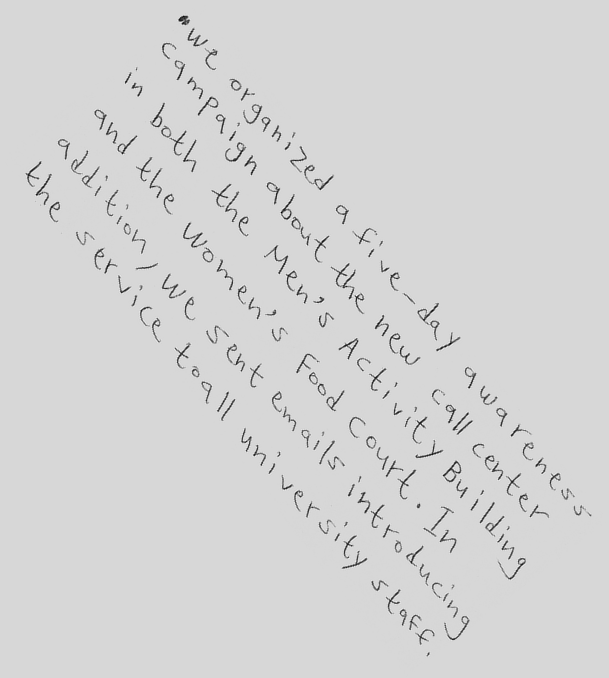 • we organized a five-day awareness
campaign about the new call center
in both the Men's Activity Building
and the Women's Food Court. In
addition, we sent emails introducing
the service to all university staff.